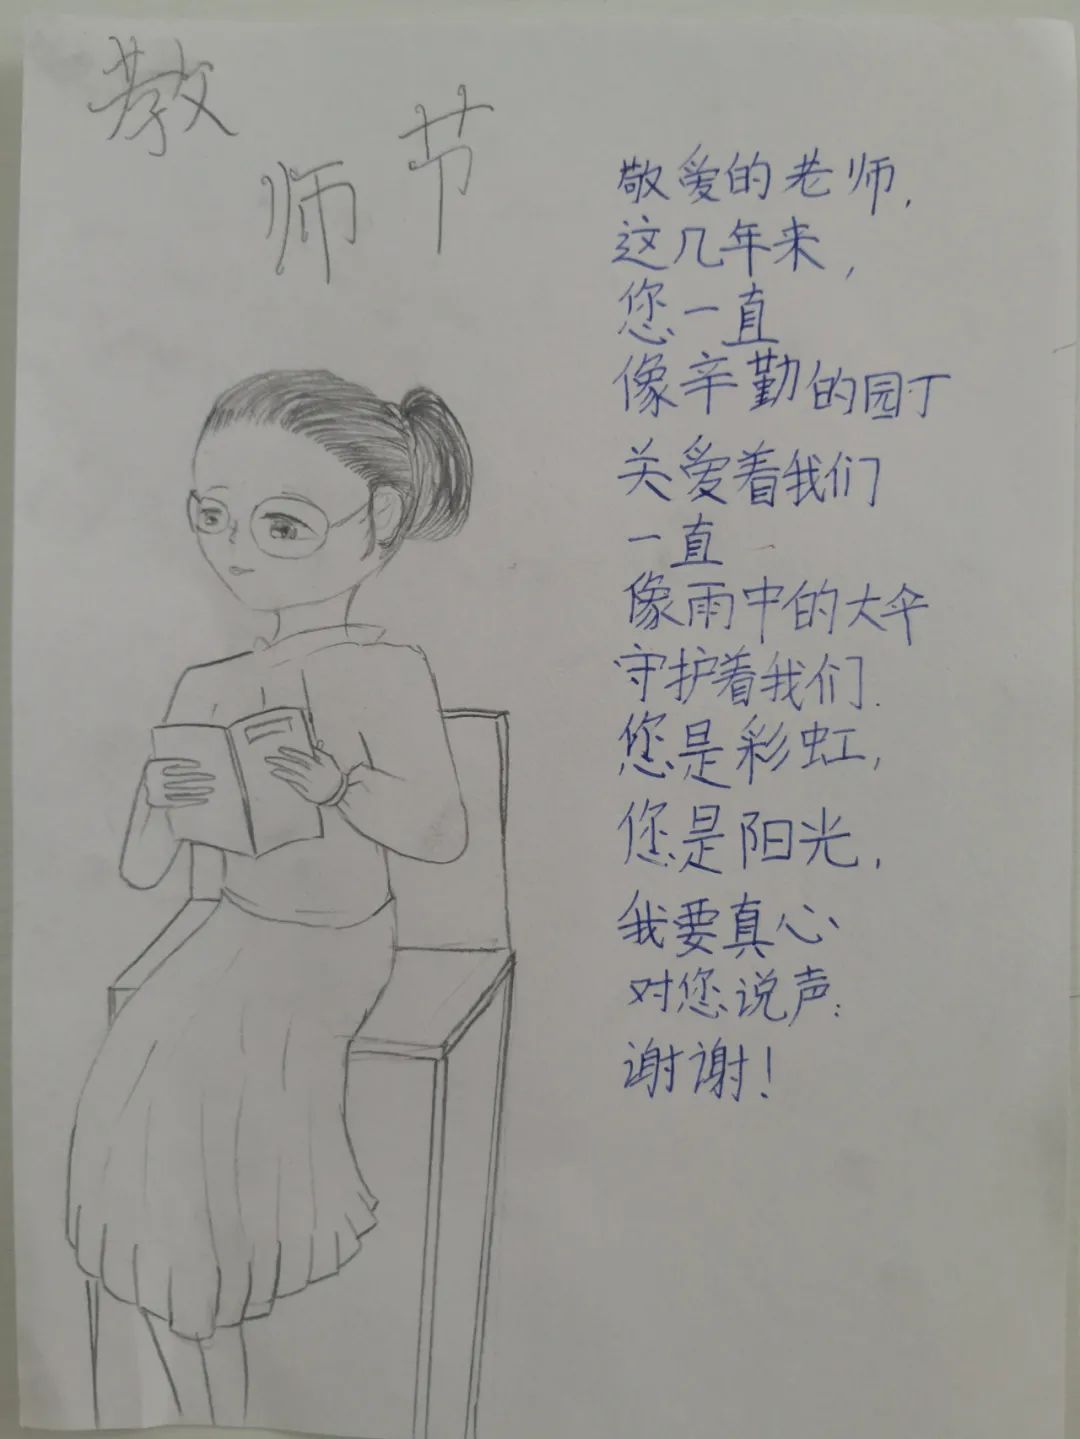 教师节
敬爱的老师,
这几年来,
您一直
像辛勤的园丁
关爱着我们
一直
像雨中的大伞
守护着我们.
您是彩虹,
您是阳光,
我要真心
对您说声:
谢谢!